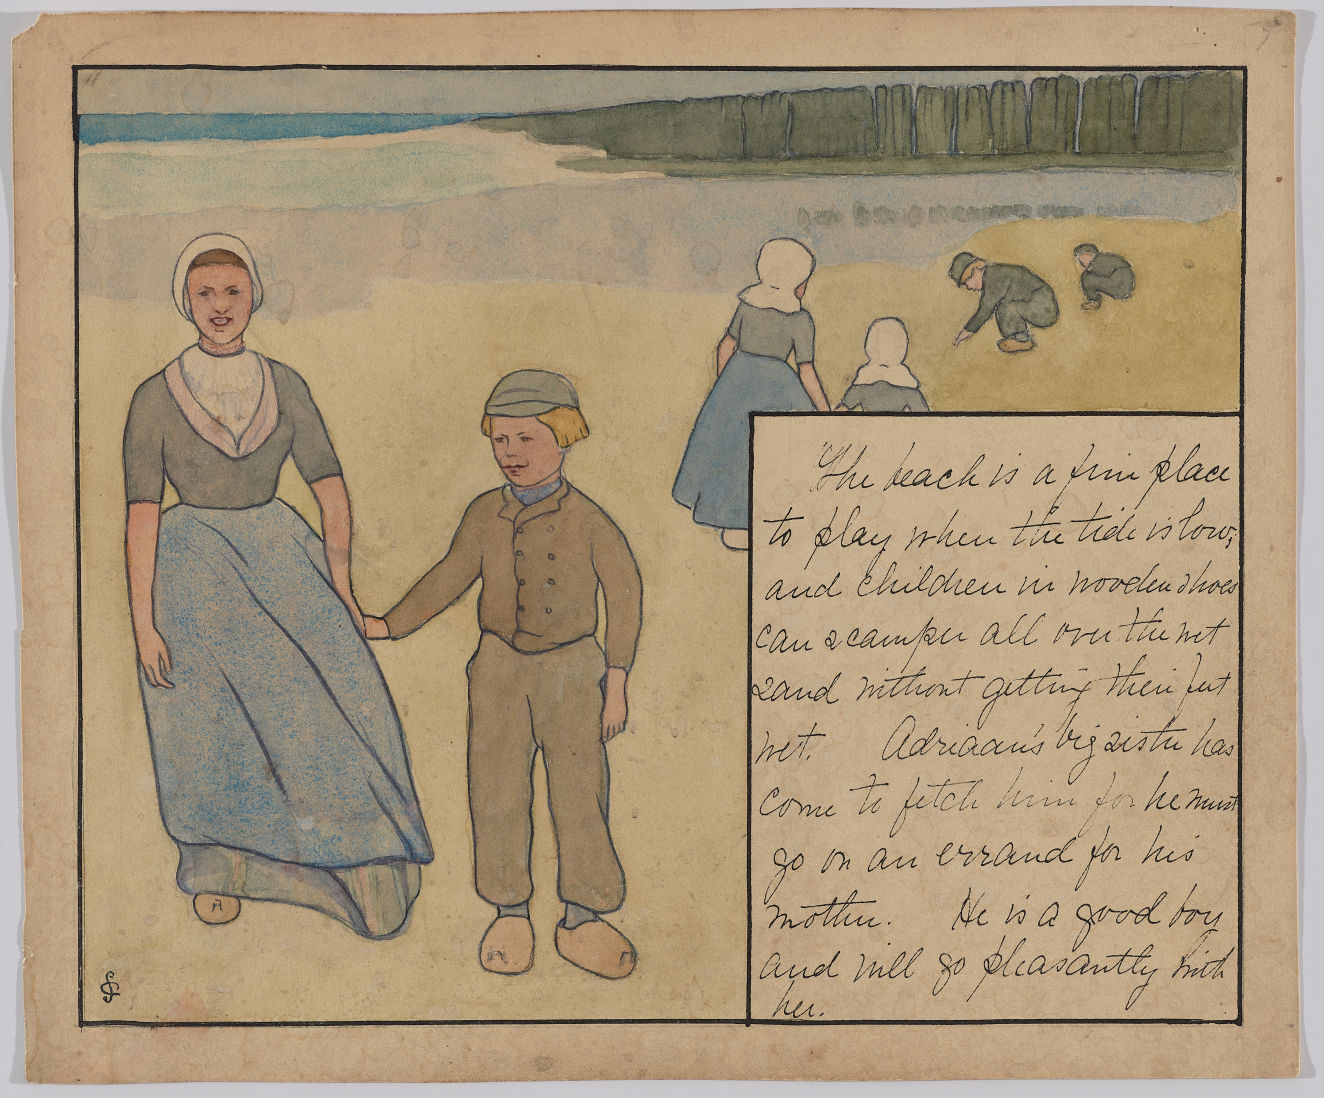 The beach is a fine place
to play when the tide is low;
and children in wooden shoes
can scamper all over the wet
sand without getting their feet
wet. Adriaan's big sister has
come to fetch him for he must
go on an errand for his
mother. He is a good boy
and will go pleasantly with
her.